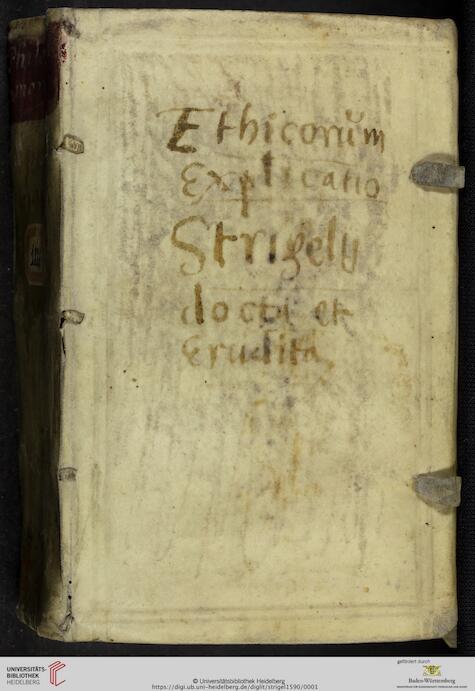 Ethicorum
Explicatio
Strigely
docta et
Erudita
UNIVERSITÄTS-
BIBLIOTHEK
HEIDELBERG
© Universitätsbibliothek Heidelberg
https://digi.ub.uni-heidelberg.de/diglit/strigel1590/0001
gefördert durch
Baden-Württemberg